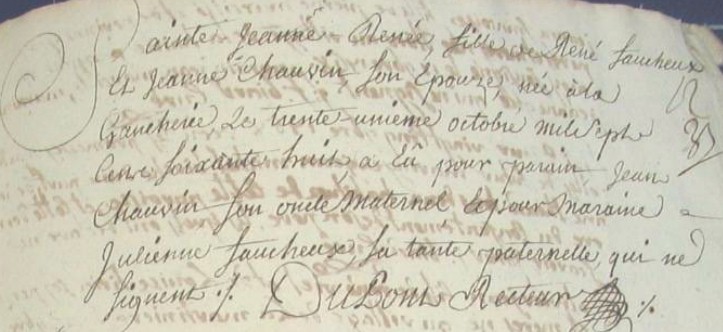 Sainte Jeanne Renée, fille de René faucheux
Et Jeanne Chauvin, son Epouze, née à la
Gaucherie, Le trente-unieme octobre mil Sept
Cens Soixante huit, a Eû pour parain Jean
Chauvin son oncle Maternel, Et pour Maraine
Julienne faucheux, sa tante paternelle, qui ne
signent ./. Recteur ./.